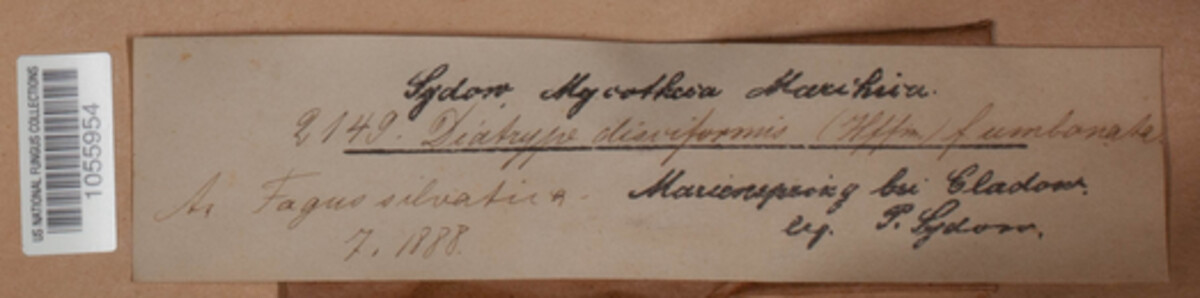 US NATIONAL FUNGUS COLLECTIONS
1055954
Sydow, Mycotheca Marchica.
2149. Diatrype disciformis (Hffm) f umbonata
A. Fagus silvatica.
7. 1888.
Marienspring bei Cladow.
leg. P. Sydow.